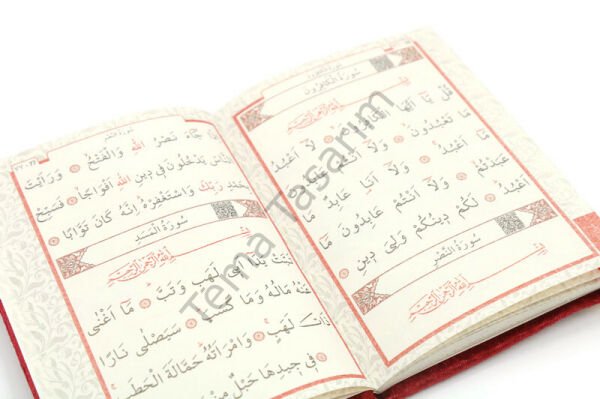 سُورَةُ الْكَافِرُونَ
سُورَةُ الْكَافِرُونَ
قُلْ يَا أَيُّهَا الْكَافِرُونَ لَا أَعْبُدُ
مَا تَعْبُدُونَ وَلَا أَنْتُمْ عَابِدُونَ
مَا أَعْبُدُ وَلَا أَنَا عَابِدٌ مَا
عَبَدْتُمْ وَلَا أَنْتُمْ عَابِدُونَ مَا
أَعْبُدُ لَكُمْ دِينُكُمْ وَلِيَ دِينِ
سُورَةُ النَّصْرِ
سُورَةُ النَّصْرِ
جَاءَ نَصْرُ اللّٰهِ وَالْفَتْحُ وَرَأَيْتَ
النَّاسَ يَدْخُلُونَ فِي دِينِ اللّٰهِ أَفْوَاجًا فَسَبِّحْ
بِحَمْدِ رَبِّكَ وَاسْتَغْفِرْهُ إِنَّهُ كَانَ تَوَّابًا
سُورَةُ الْمَسَدِ
تَبَّتْ يَدَا أَبِي لَهَبٍ وَتَبَّ مَا أَغْنٰى
عَنْهُ مَالُهُ وَمَا كَسَبَ سَيَصْلٰى نَارًا
ذَاتَ لَهَبٍ وَامْرَأَتُهُ حَمَّالَةَ الْحَطَبِ
فِي جِيدِهَا حَبْلٌ مِنْ
Tema Tasarım